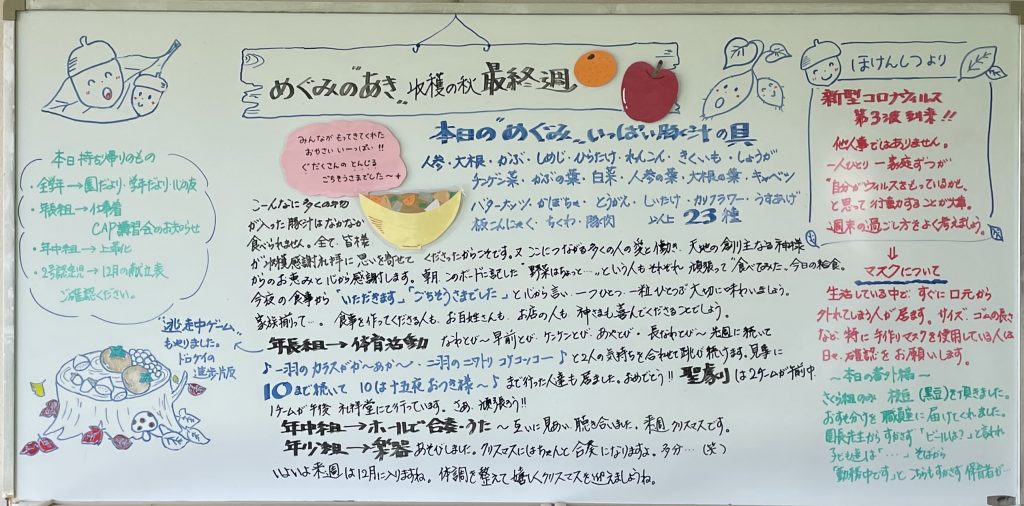 めぐみの"あき" 収穫の秋 最終週
本日の"めぐみ"いっぱい豚汁の具
人参・大根・かぶ・しめじ・ひらたけ・れんこん・きくいも・しょうが
チンゲン菜・かぶの葉・白菜・人参の葉・大根の葉・キャベツ
バターナッツ・かぼちゃ・とうがん・しいたけ・カリフラワー・うすあげ
板こんにゃく・ちくわ・豚肉 以上 23種
みんながもってきてくれた
おやさいいーっぱい!!
ぐだくさんのとんじる
ごちそうさまでした〜
本日持ち帰りのもの
・全学年→園だより・学年だより・
・年長組→仕事着
CAP講習会のお知らせ
・年中組→上靴化
・2号認定児→12月の献立表
ご確認ください。
"逃走中ゲーム"
もやりました。
ドロケイの
進歩版
こーんなに多くの物
が入った豚汁はなかなか
食べられません。全て、皆様
が収穫感謝礼拝に思いを寄せてくださったからこそです。又ここにつながる多くの人の愛と働き、天地の創り主なる神様
からのお恵みと心から感謝します。朝、このボードに記した"野菜はちょっと…。"という人もそれぞれ頑張って"食べてみた。今日の給食。
今夜の食事から「いただきます」「ごちそうさまでした」と心から言い、一つひとつ、一粒ひとつぶ大切に味わいましょう。
家族揃って…。食事を作ってくださる人も、お百姓さんも、お店の人も、神さまも喜んでくださることでしょう。
年長組→体育活動 なわとび〜早前とび、ケンケンとび、あやとび・長なわとび〜先週に続いて
♪一羽のカラスがカーあか〜、二羽のニワトリコケコッコー♪と2人の気持ちを合わせて跳び続けます。見事に
10まで続いて 10は十五夜お月様〜♪まで行った人達も居ました。おめでとう!! 聖劇は2ゲームが午前中
1ゲームが午後 礼拝堂にて行っています。さあ、頑張ろう!!
年中組→ホールで合奏・うた〜互いに見あい、聴き合いました。来週、クリスマスです。
年少組→楽器あそびしました。クリスマスにはちゃんと合奏になりますよ。多分…(笑)
いよいよ来週は12月に入りますね。体調を整えて嬉しくクリスマスを迎えましょうね。
ほけんしつより
新型コロナウィルス
第3波到来!!
他人事ではありません。
一人ひとり 一家庭ずつが
"自分がウィルスをもっているかも"
と思って行動することが大事。
週末の過ごし方をよく考えましょう。
⇓
マスクについて
生活している中で、すぐに口元から
外れてしまう人が居ます。サイズ、ゴムの長さ
など、特に手作りマスクを使用している人は
日々、確認をお願いします。
〜本日の番外編〜
さくら組のみ 枝豆(黒豆)を頂きました。
おすそ分けを職員室に届けてくれました。
園長先生からすかさず「ビールは?」と言われ
子ども達は「……」そばから
「勤務中です」とこちらもすかさず保育者が…